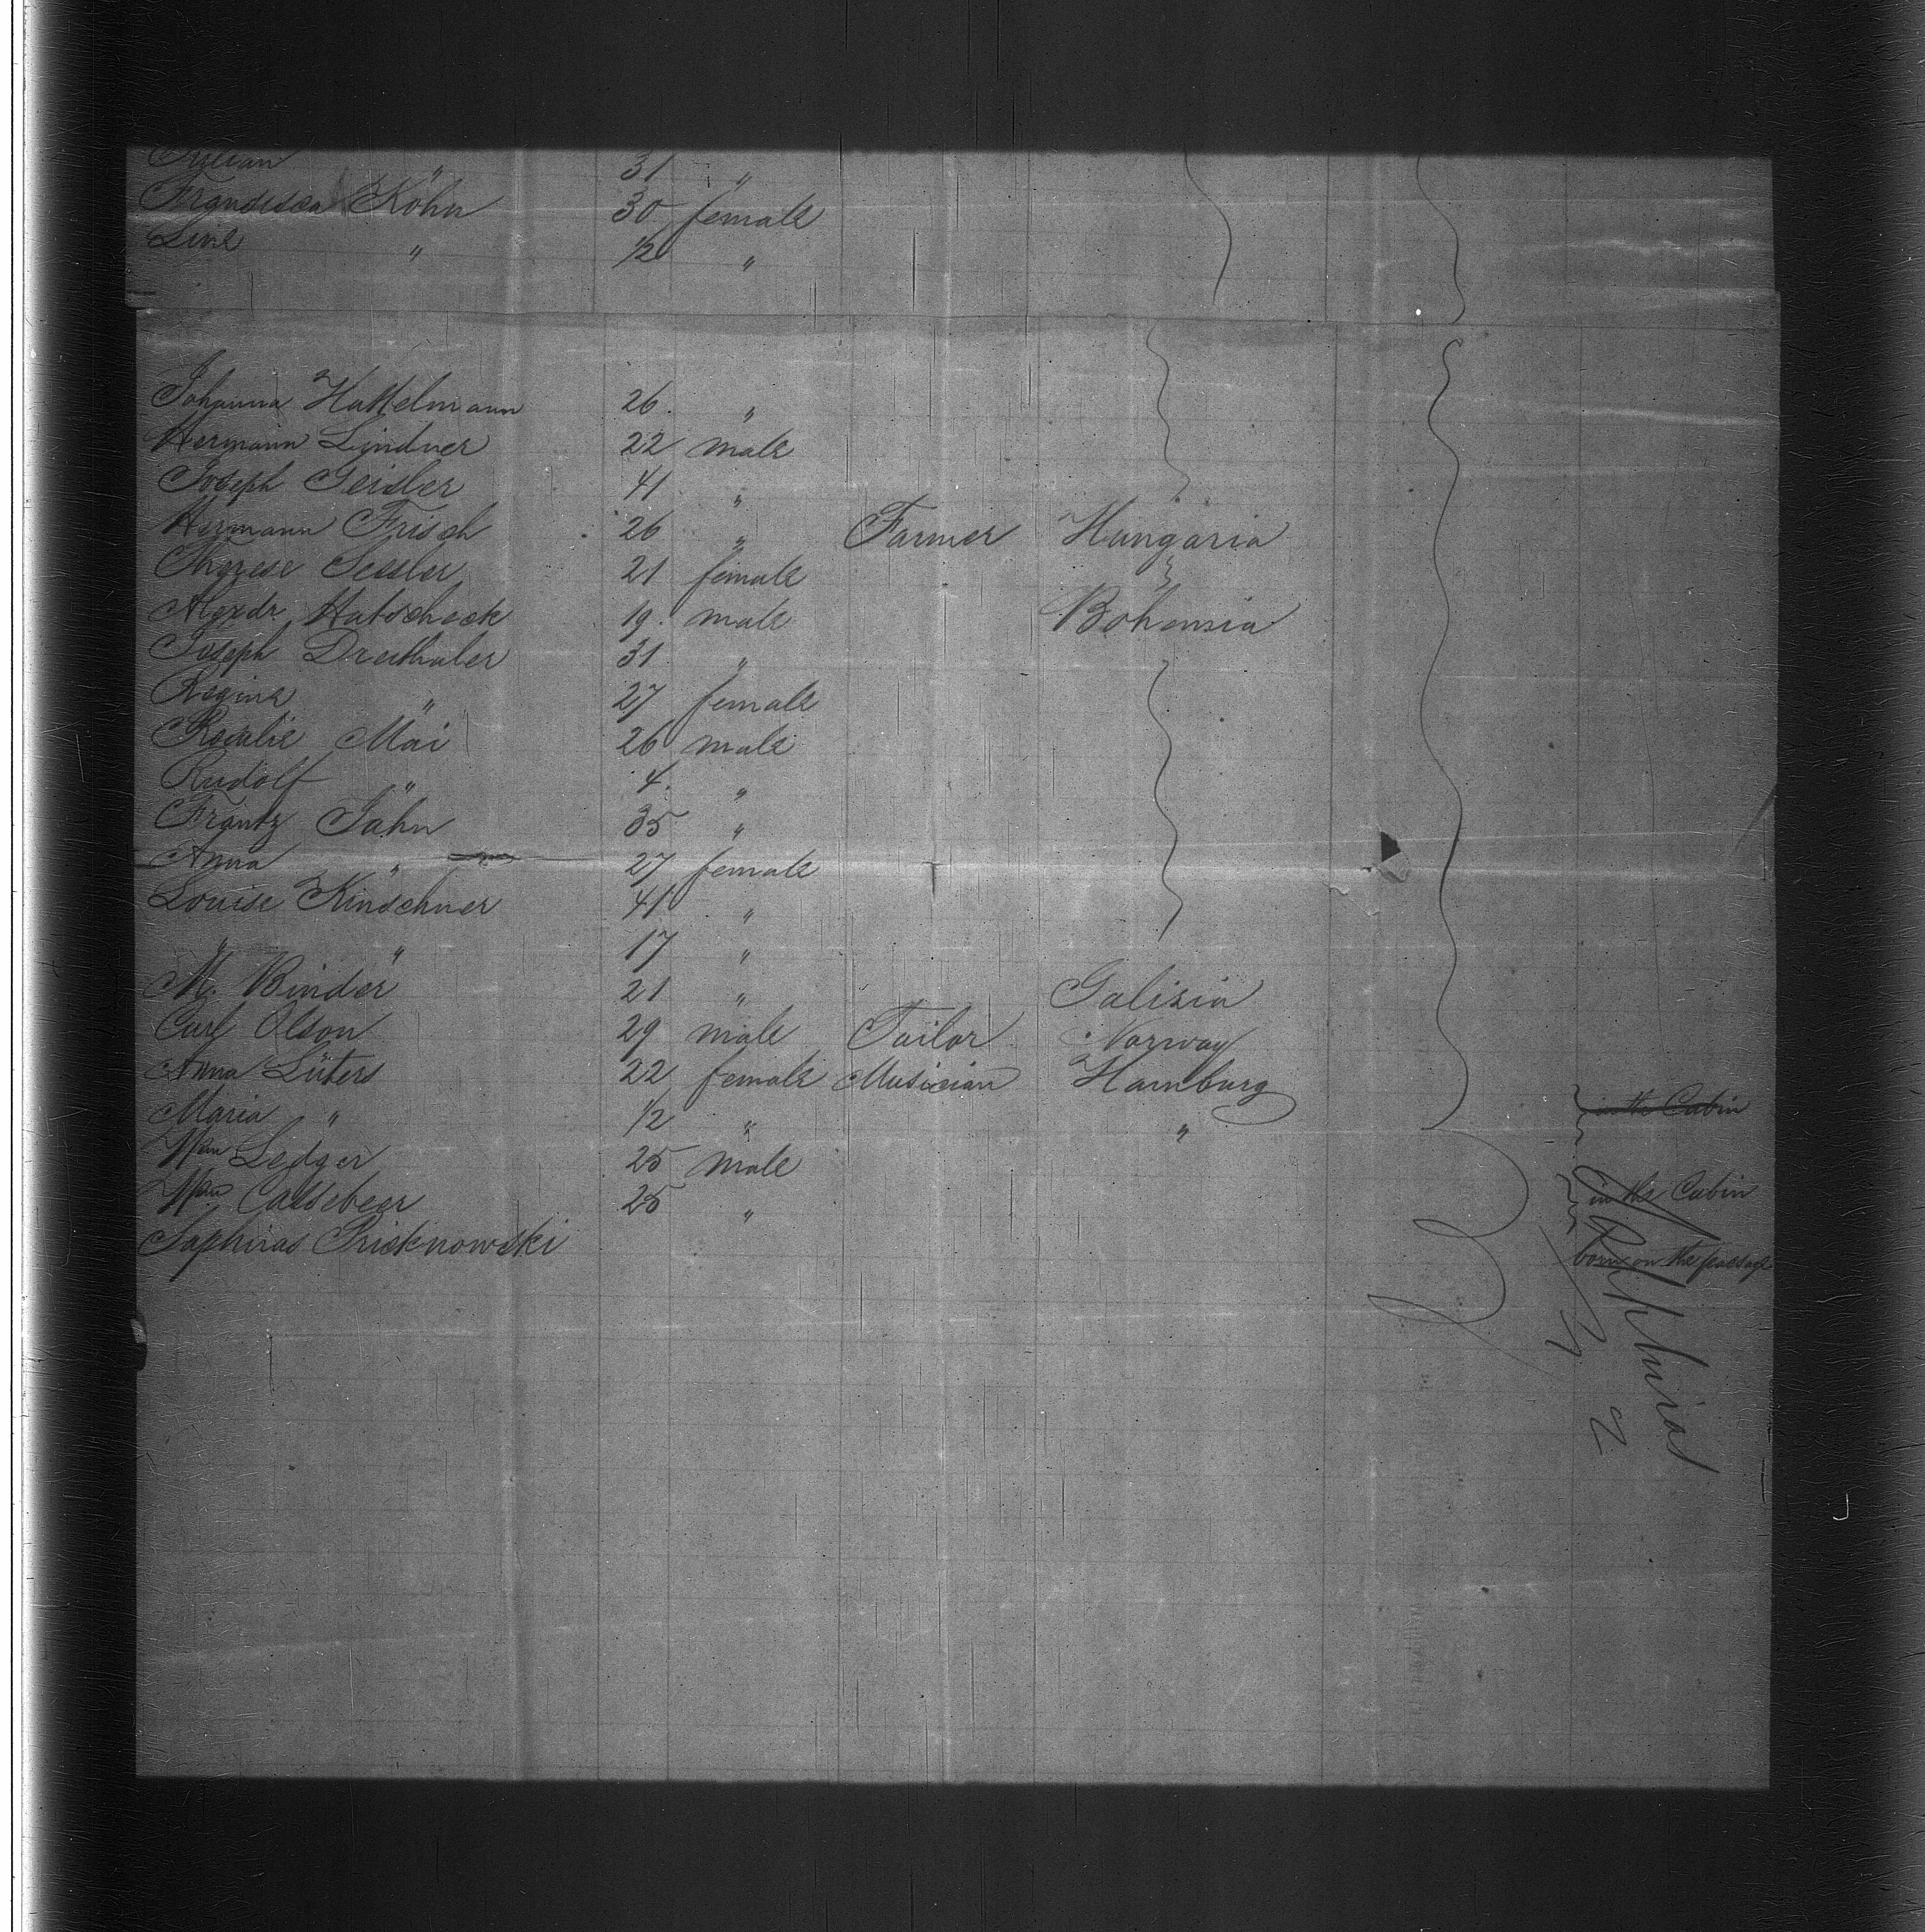 Julian " 31 "
Francisca Kohn 30 female
Line " 1/2 "
Johanna Hattelmann 26. "
Hermann Lindner 22 male
Joseph Geisler 41 "
Hermann Frisch 26 " Farmer Hungaria
Therese Sessler 21 female
Alexdr. Habscheck 19. male Bohemia
Joseph Dreithaler 31 "
Regine " 27 female
Rosalie Mai 26 male
Rudolf " 4. "
Frantz Jahn 35 "
Anna " 27 female
Louise Kirschner 41 "
" " 17 "
M. Binder 21 " Galizia
Carl Olson 29 male Tailor Norway
Anna Lüters 22 female Musician Hamburg
Maria " 1/2 " " in the Cabin
Wm Ledger 25 male
Wm Cassebeer 25 " in the Cabin
Saphiras Pricknowski born on the passage